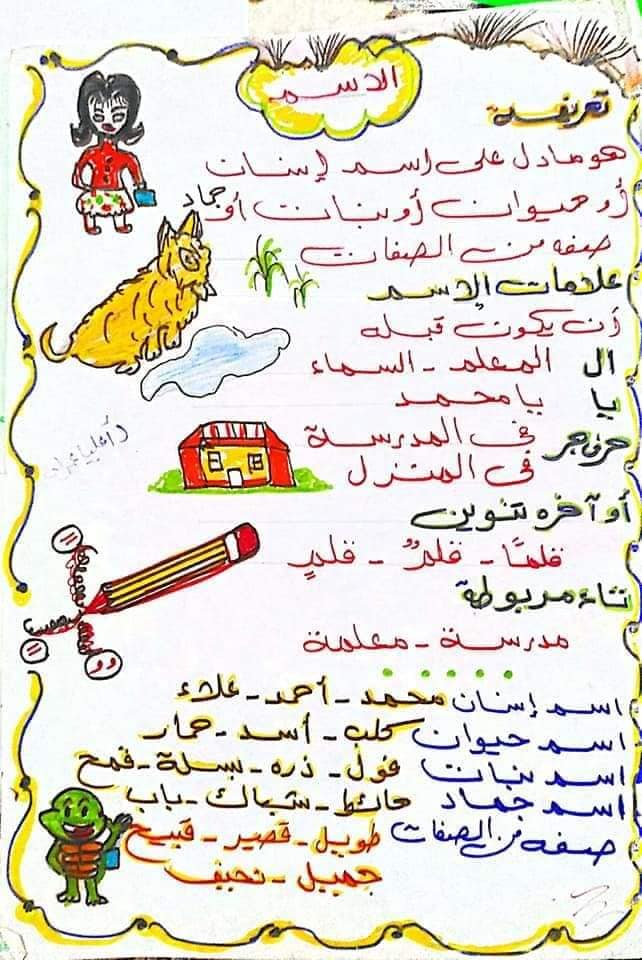 الاسم
تعريفه
هو ما دل على اسم إنسان
أو حيوان أو نبات أو جماد
صفه من الصفات
علامات الإسم
أن يكون قبله
ال المعلم - السماء
يا يا محمد
حرف جر فى المدرسة
فى المنزل
أو آخره تنوين
قلمًا - قلمٌ - قلمٍ
تاء مربوطة
مدرسة - معلمة
اسم إنسان محمد - أحمد - علاء
اسم حيوان كلب - أسد - حمار
اسم نبات فول - ذره - بسلة - قمح
اسم جماد حائط - شباك - باب
صفه من الصفات طويل - قصير - قبيح
جميل - نحيف